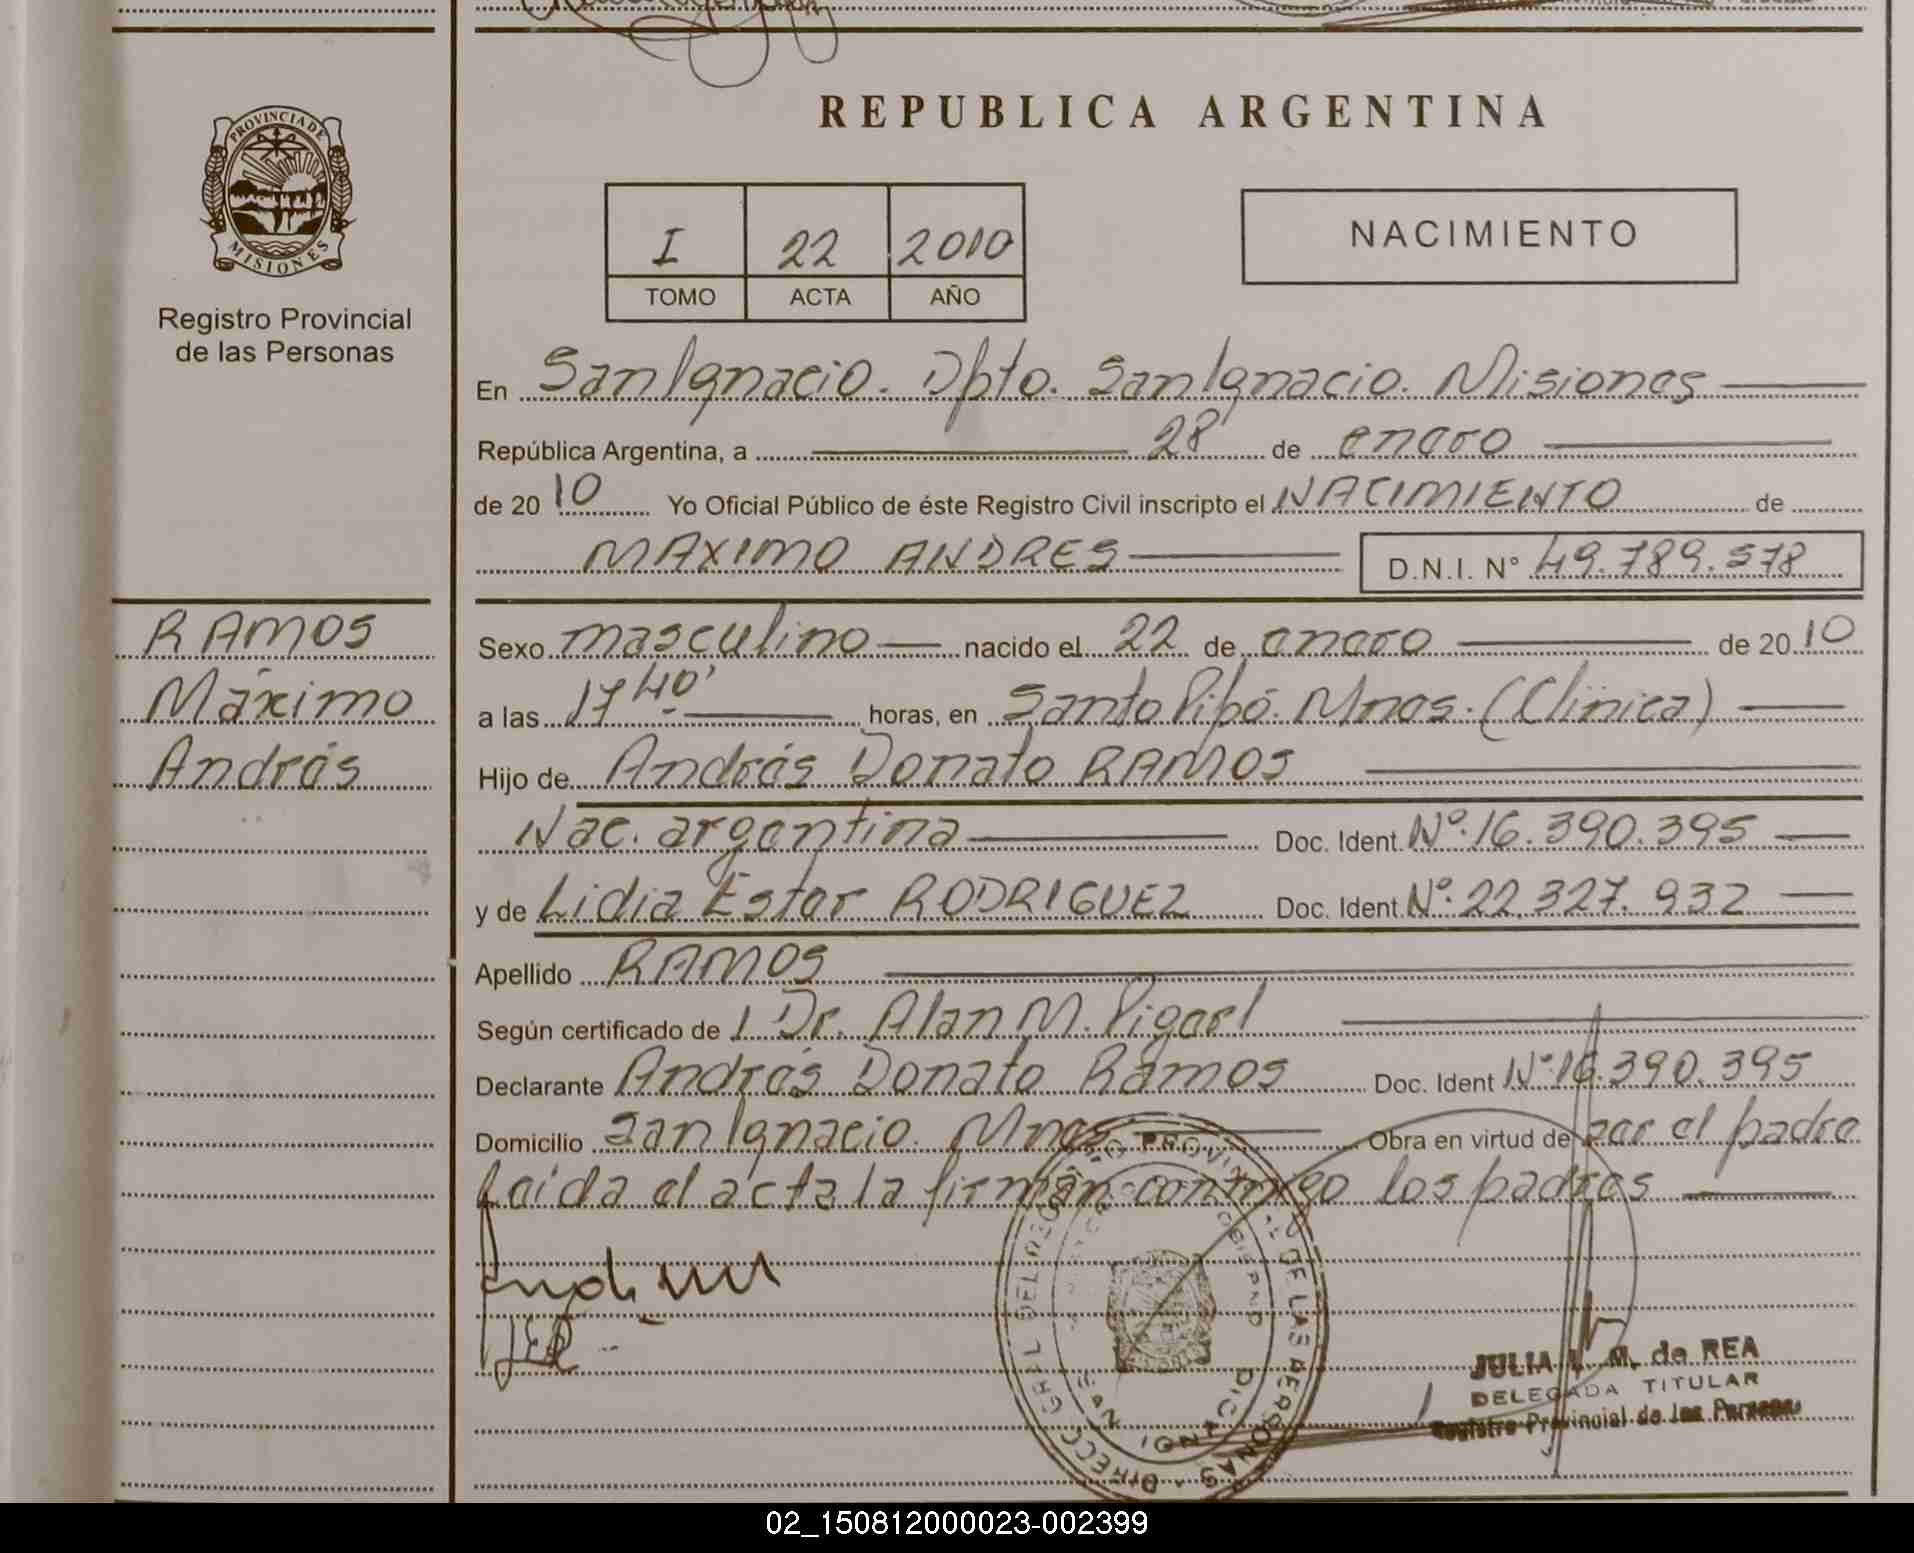 REPUBLICA ARGENTINA
PROVINCIA DE
MISIONES
Registro Provincial
de las Personas
I 22 2010
TOMO ACTA AÑO
NACIMIENTO
En San Ignacio. Dpto. San Ignacio. Misiones
República Argentina, a 28 de enero
de 20 10 Yo Oficial Público de éste Registro Civil inscripto el NACIMIENTO de
MAXIMO ANDRES D.N.I. N° 49.789.578
RAMOS
Máximo
Andrés
Sexo masculino nacido el 22 de enero de 20 10
a las 17 40' horas, en Santo Pipó. Mnes. (Clínica)
Hijo de Andrés Donato RAMOS
Nac. argentina Doc. Ident. Nº. 16.390.395
y de Lidia Ester RODRIGUEZ Doc. Ident. Nº. 22.327.932
Apellido RAMOS
Según certificado de l Dr. Alan M. Pigerl
Declarante Andrés Donato Ramos Doc. Ident Nº 16.390.395
Domicilio San Ignacio. Mnes Obra en virtud de ser el padre
Leída el acta la firman conmigo los padres
DIRECC. GRAL DEL REGISTRO PROVINCIAL DE LAS PERSONAS
SAN IGNACIO
JULIA I. M. de REA
DELEGADA TITULAR
Registro Provincial de las Personas
02_150812000023-002399